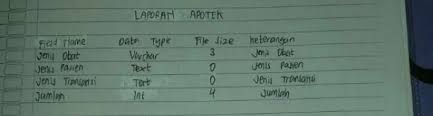 LAPORAN APOTEK
Field Name Data Type File Size keterangan
Jenis Obat Varchar 3 Jenis Obat
Jenis Pasien Text 0 Jenis Pasien
Jenis Transaksi Text 0 Jenis Transaksi
Jumlah Int 4 Jumlah